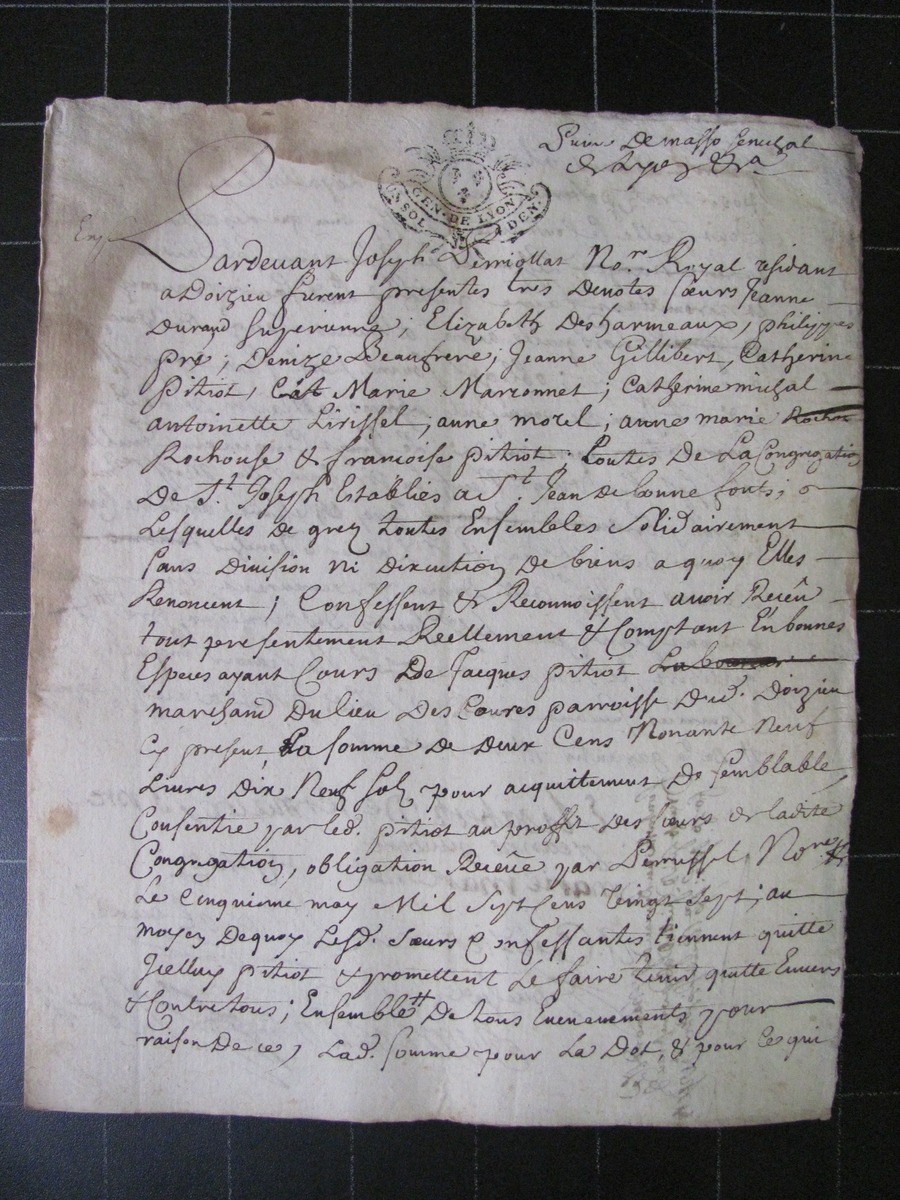 GEN. DE LYON
SOL DEN.
Pardevant Joseph Perriollat No.r Royal residant
a Doizieu furent presentes tres Devotes sœurs Jeanne
Durand superieure ; Elizabeth Desharmeaux, philippes
pre ; Denize Beaufrere ; Jeanne Gillibert, Catherine
pitiot, Marie Marronnet ; Catherine michal
antoinette ; anne morel ; anne marie Rochou
Rochouse & francoise pitiot ; toutes De La Congregation
De S.t Joseph Establies a S.t Jean de bonne fonts ;
Lesquelles de grez toutes Ensembles Solidairement
sans Division ni Discution De biens a quoy Elles
Renoncent ; Confessent & Reconnoissent avoir Receu
tout presentement Reellement & Comptant En bonnes
Especes ayant Cours De Jacques pitiot Laboureur
marchand Du lieu Des Coures parroisse Dud. Doizieu
Cy present, La somme de Deux Cens Nonante Neuf
Livres Dix Neuf Solz pour acquittement De semblable
Consentie par led. pitiot au proffit des sœurs de ladite
Congregation, obligation Receue par Perrussel No.re
Le Cinquieme may Mil Sept Cens Vingt Sept ; au
moyen Dequoy Lesd. sœurs Confessantes tiennent quitte
Jcelluy pitiot & promettent Le faire tenir quitte Envers
& Contre tous ; Ensemble De tous Evenements pour
raison De ce, Lad. somme pour La Dot, & pour ce qui